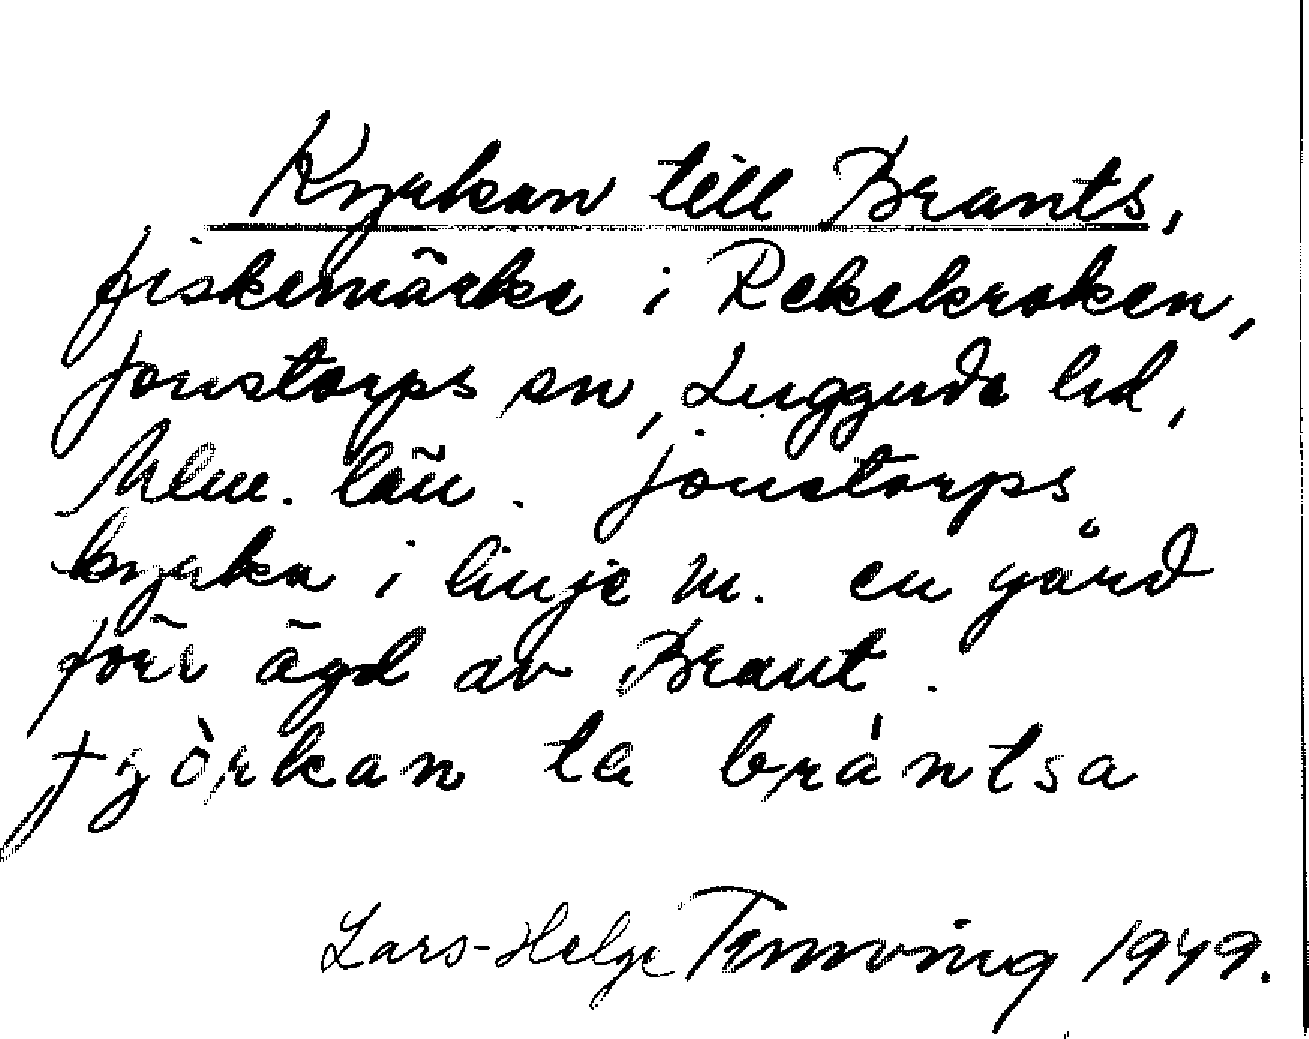 Kyrkan till Brants,
fiskemärke i Rekekroken,
Jonstorps sn, Luggude hd,
Mlm. län. Jonstorps
kyrka i linje m. en gård
förr ägd av Brant.
tyòrkan ta brántsa
Lars-Helge 1949.